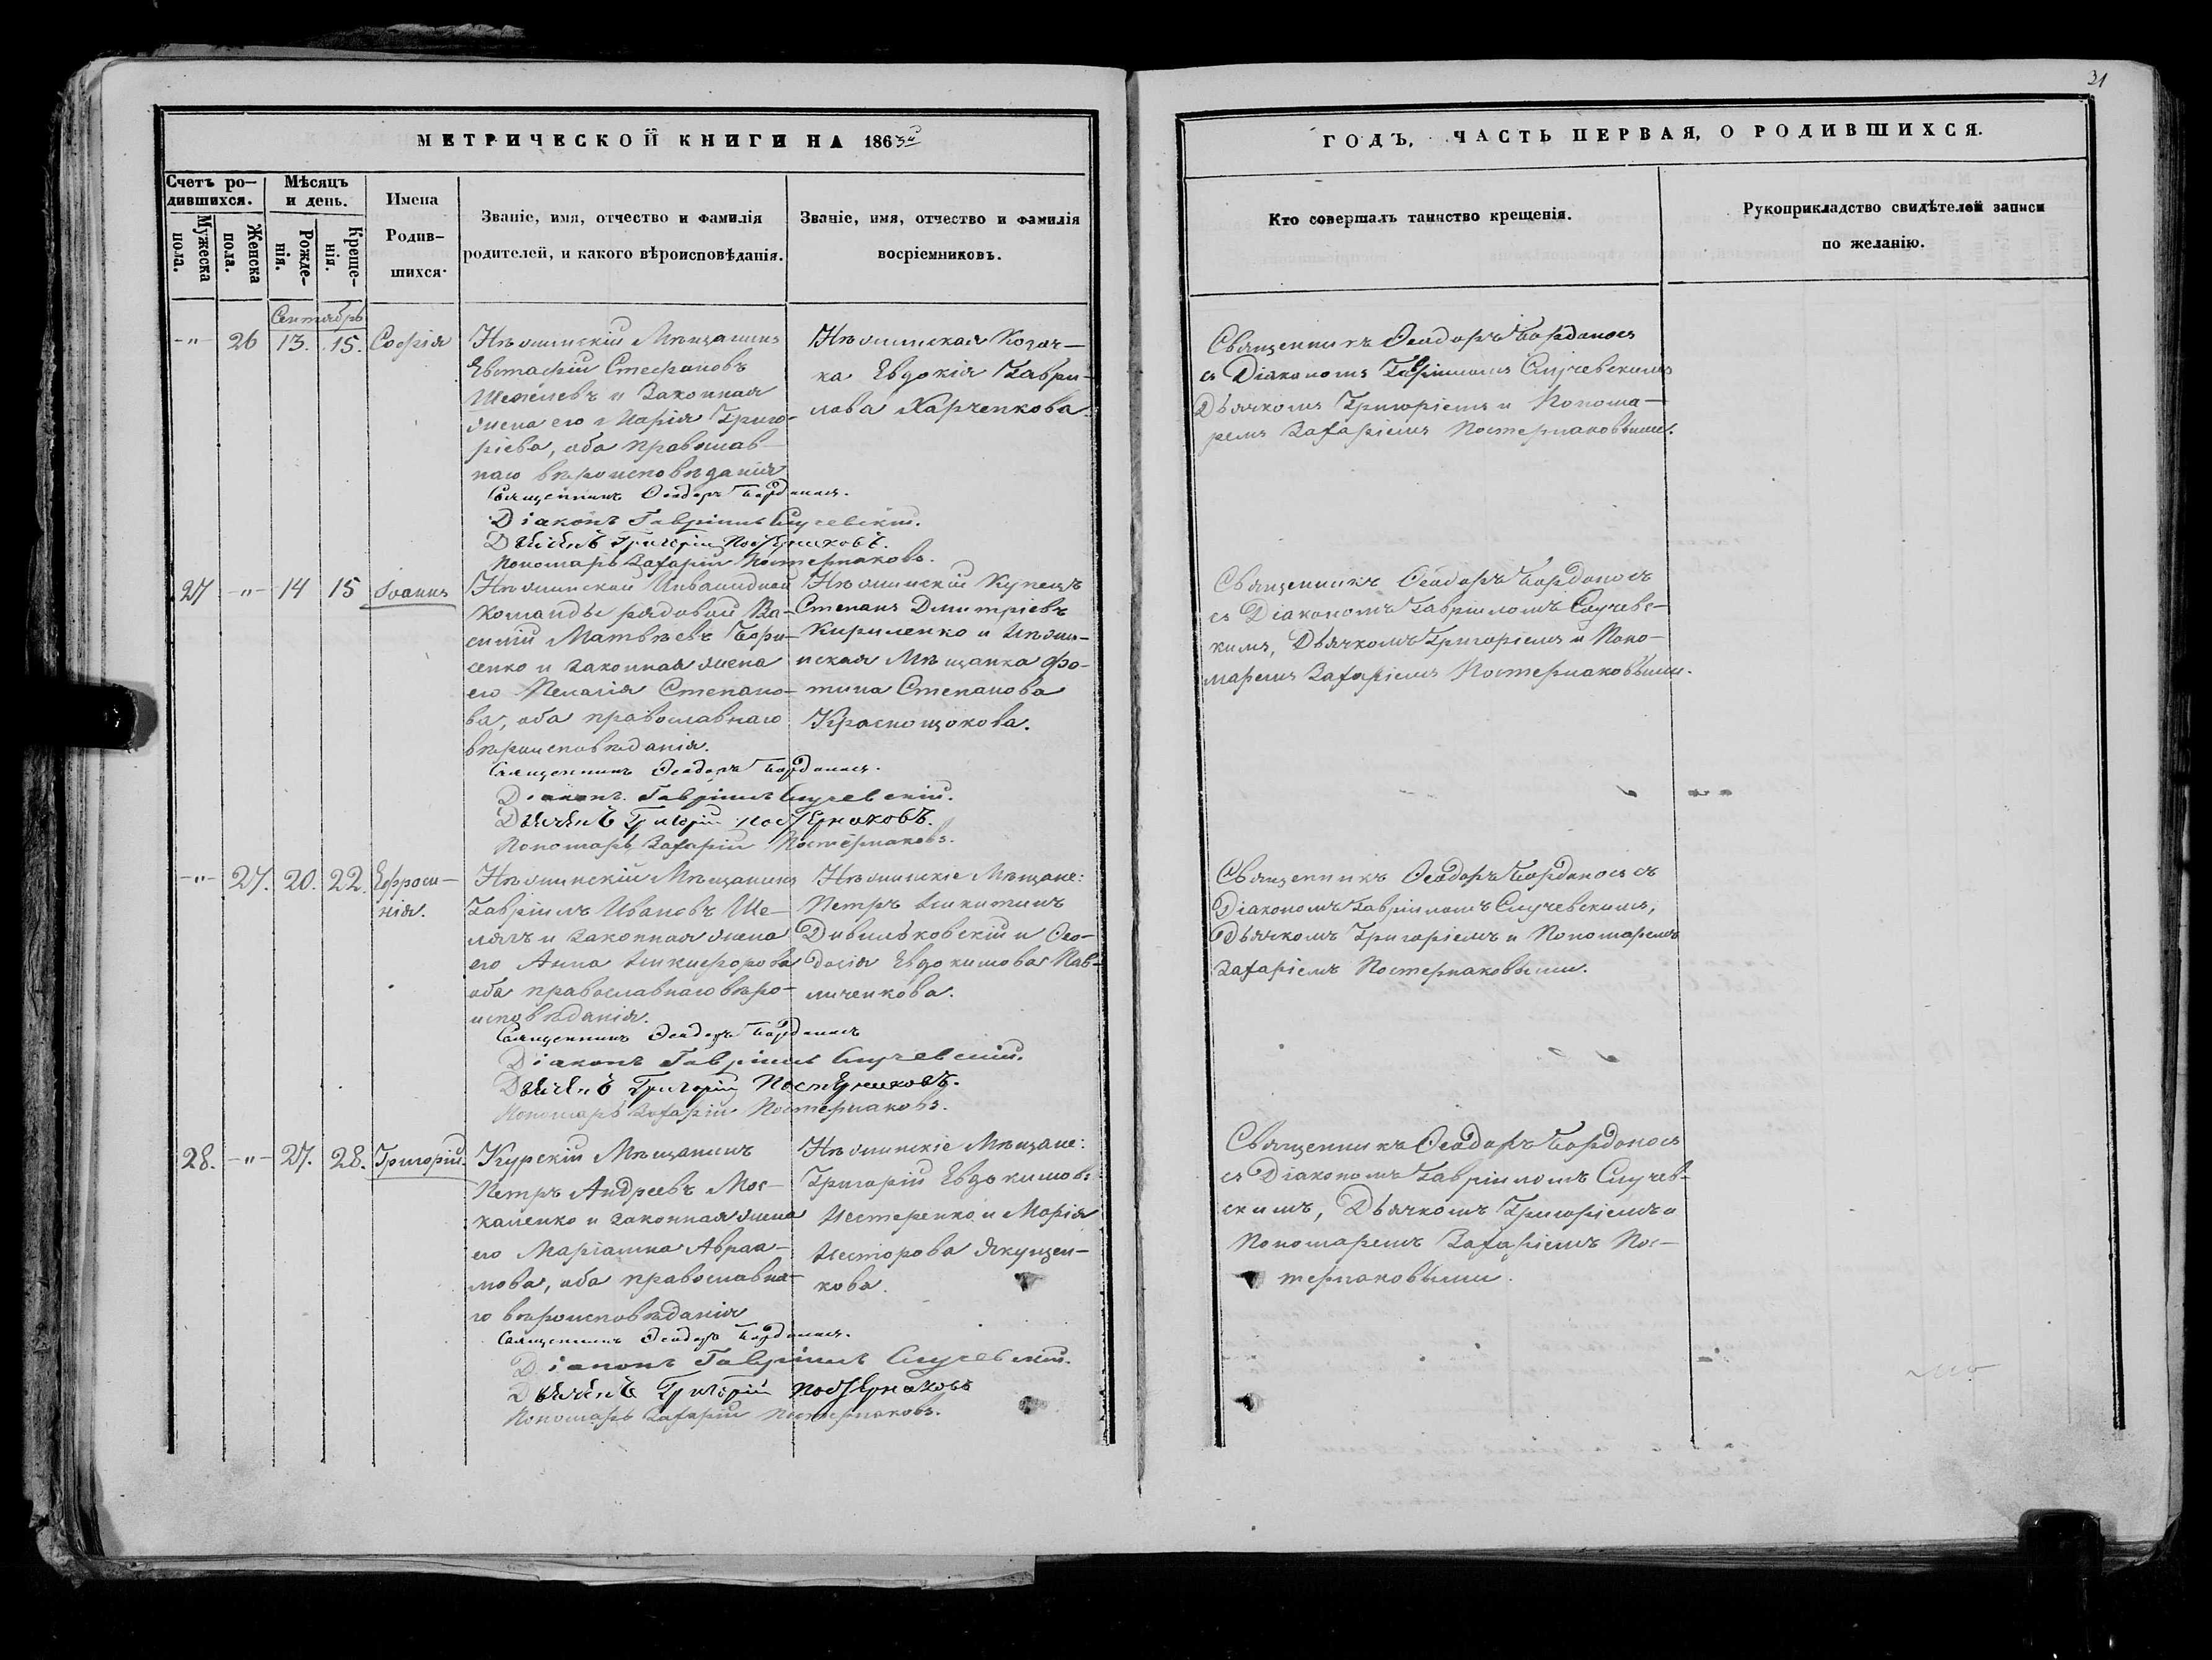 31
МЕТРИЧЕСКОЙ КНИГИ НА 1863й
ГОДЪ, ЧАСТЬ ПЕРВАЯ, О РОДИВШИХСЯ.
Счетъ ро-
дившихся.
Мужеска пола.
Женска пола.
Мѣсяцъ
и день.
Рожде-
нія.
Креще-
нія.
Имена
Родив-
шихся.
Званіе, имя, отчество и фамилія
родителей, и какого вѣроисповѣданія.
Званіе, имя, отчество и фамилія
восріемниковъ.
Кто совершалъ таинство крещенія.
Рукоприкладство свидѣтелей записи
по желанію.
Сентябрь
-"- 26 13. 15. Софія
Нѣжинскій Мѣщанинъ
Евстафій Стефановъ
и Законная
жена его Марія Григо-
рієва, оба православ-
наго вѣроисповѣданія
Священникъ Ѳеодоръ Бордоносъ.
Діаконъ Гавріилъ Случевскій.
Дьячекъ Григорій Постернаковъ.
Пономарь Захарій Постернаковъ.
Нѣжинская Козач-
ка Евдокія Гаври-
лова Харченкова
Священникъ Ѳеодоръ Бордоносъ
съ Діакономъ Гавріиломъ Случевскимъ
Дьячкомъ Григоріемъ и Понома-
ремъ Захаріемъ Постернаковыми.
27 -"- 14 15 Іоаннъ
Нѣжинской Инвалидной
Команды рядовой Ва-
силій Матвѣевъ Бори-
сенко и законная жена
его Пелагія Степано-
ва, оба православнаго
вѣроисповѣданія.
Священникъ Ѳеодоръ Бордоносъ.
Діаконъ Гавріилъ Случевскій.
Дьячекъ Григорій Постернаковъ.
Пономарь Захарій Постернаковъ.
Нѣжинскій Купецъ
Степанъ Дмитріевъ
Кириленко и Нѣжи-
нская Мѣщанка Фо-
тина Степанова
Краснощокова.
Священникъ Ѳеодоръ Бордоносъ
съ Діакономъ Гавріиломъ Случевс-
кимъ, Дьячкомъ Григоріемъ и Поно-
маремъ Захаріемъ Постернаковыми.
-"- 27. 20. 22. Ефроси-
нія.
Нѣжинскій Мѣщанинъ
Гавріилъ Ивановъ Ше-
лягъ и Законная жена
его Анна Никифорова
оба православнаго вѣро-
исповѣданія.
Священникъ Ѳеодоръ Бордоносъ
Діаконъ Гавріилъ Случевскій.
Дьячекъ Григорій Постернаковъ.
Пономарь Захарій Постернаковъ.
Нѣжинскіе Мѣщане:
Петръ Никитинъ
Дивильковскій и Ѳео-
досія Евдокимова Пав-
личенкова.
Священникъ Ѳеодоръ Бордоносъ съ
Діакономъ Гавріиломъ Случевскимъ,
Дьячкомъ Григоріемъ и Пономаремъ
Захаріемъ Постернаковыми.
28. -"- 27. 28. Григорій.
Курскій Мѣщанинъ
Петръ Андреевъ Мос-
каленко и законная жена
его Маріамна Авраа-
мова, оба православна-
го вѣроисповѣданія
Священникъ Ѳеодоръ Бордоносъ.
Діаконъ Гавріилъ Случевскій.
Дьячекъ Григорій Постернаковъ
Пономарь Захарій Постернаковъ.
Нѣжинскіе Мѣщане:
Григорій Евдокимовъ
Нестеренко и Марія
Несторова Якущен-
кова.
Священникъ Ѳеодоръ Бордоносъ
съ Діакономъ Гавріиломъ Случев-
скимъ, Дьячкомъ Григоріемъ и
Пономаремъ Захаріемъ Пос-
тернаковыми.